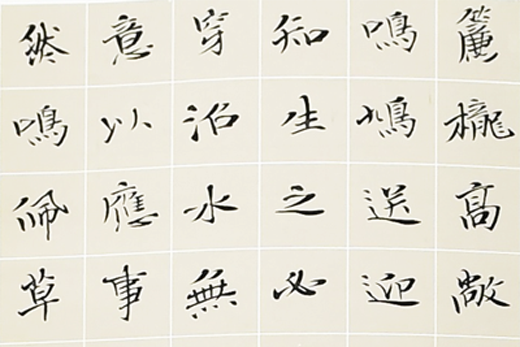 簾櫳高敞
鳴鳩送迎
知生之必
穿沼水無
意以應事
然鳴佩草